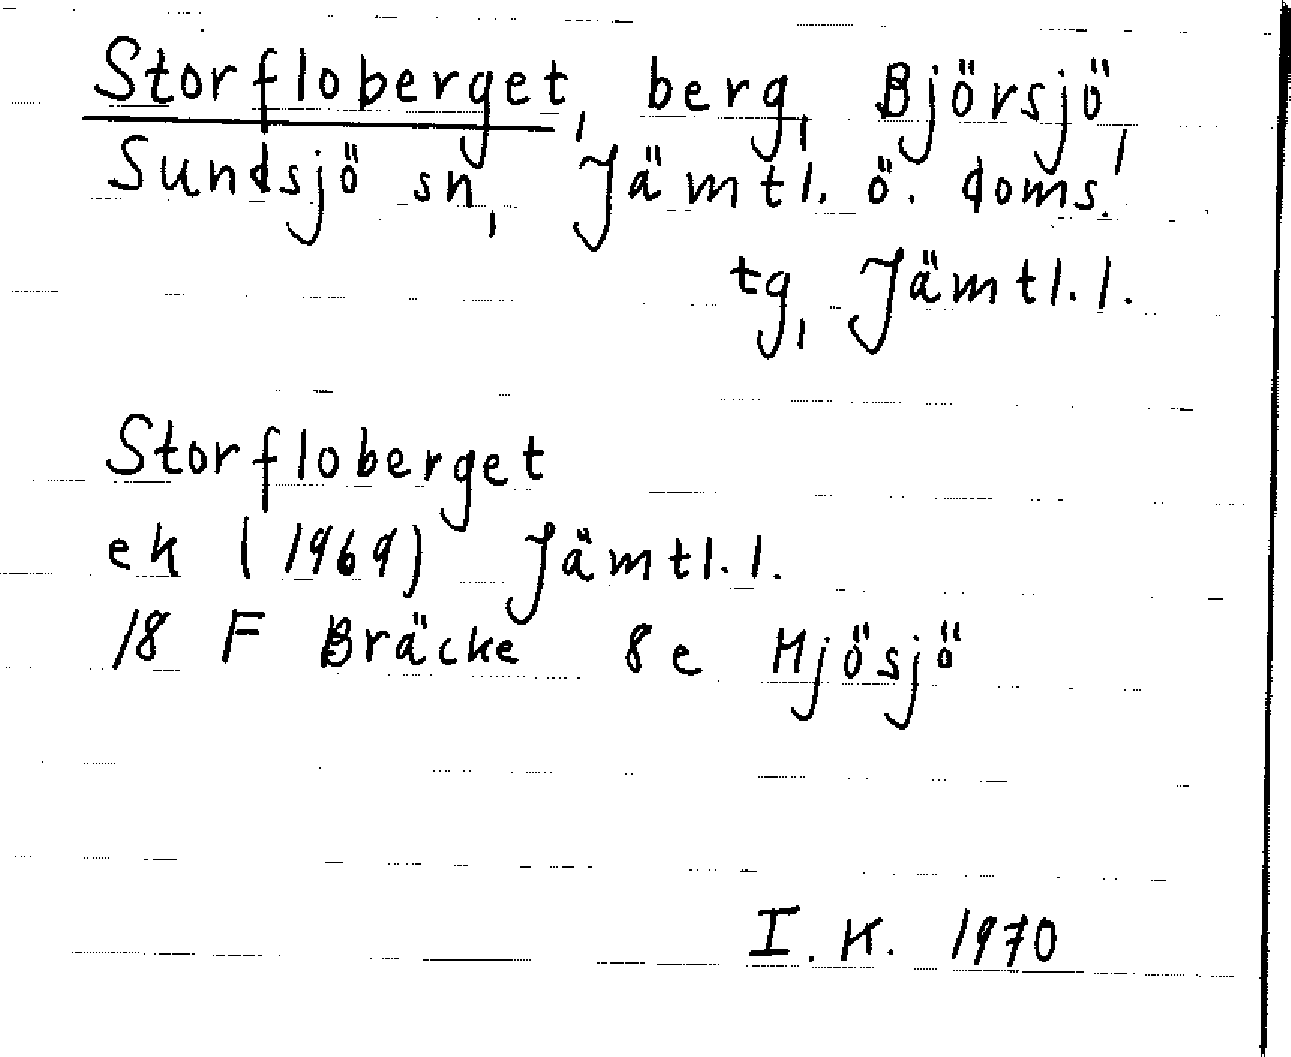 Storfloberget, berg, Björsjö,
Sundsjö sn, Jämtl. ö. doms.
tg, Jämtl. l.
Storfloberget
ek (1969) Jämtl. l.
18 F Bräcke 8e Mjösjö
I. K. 1970